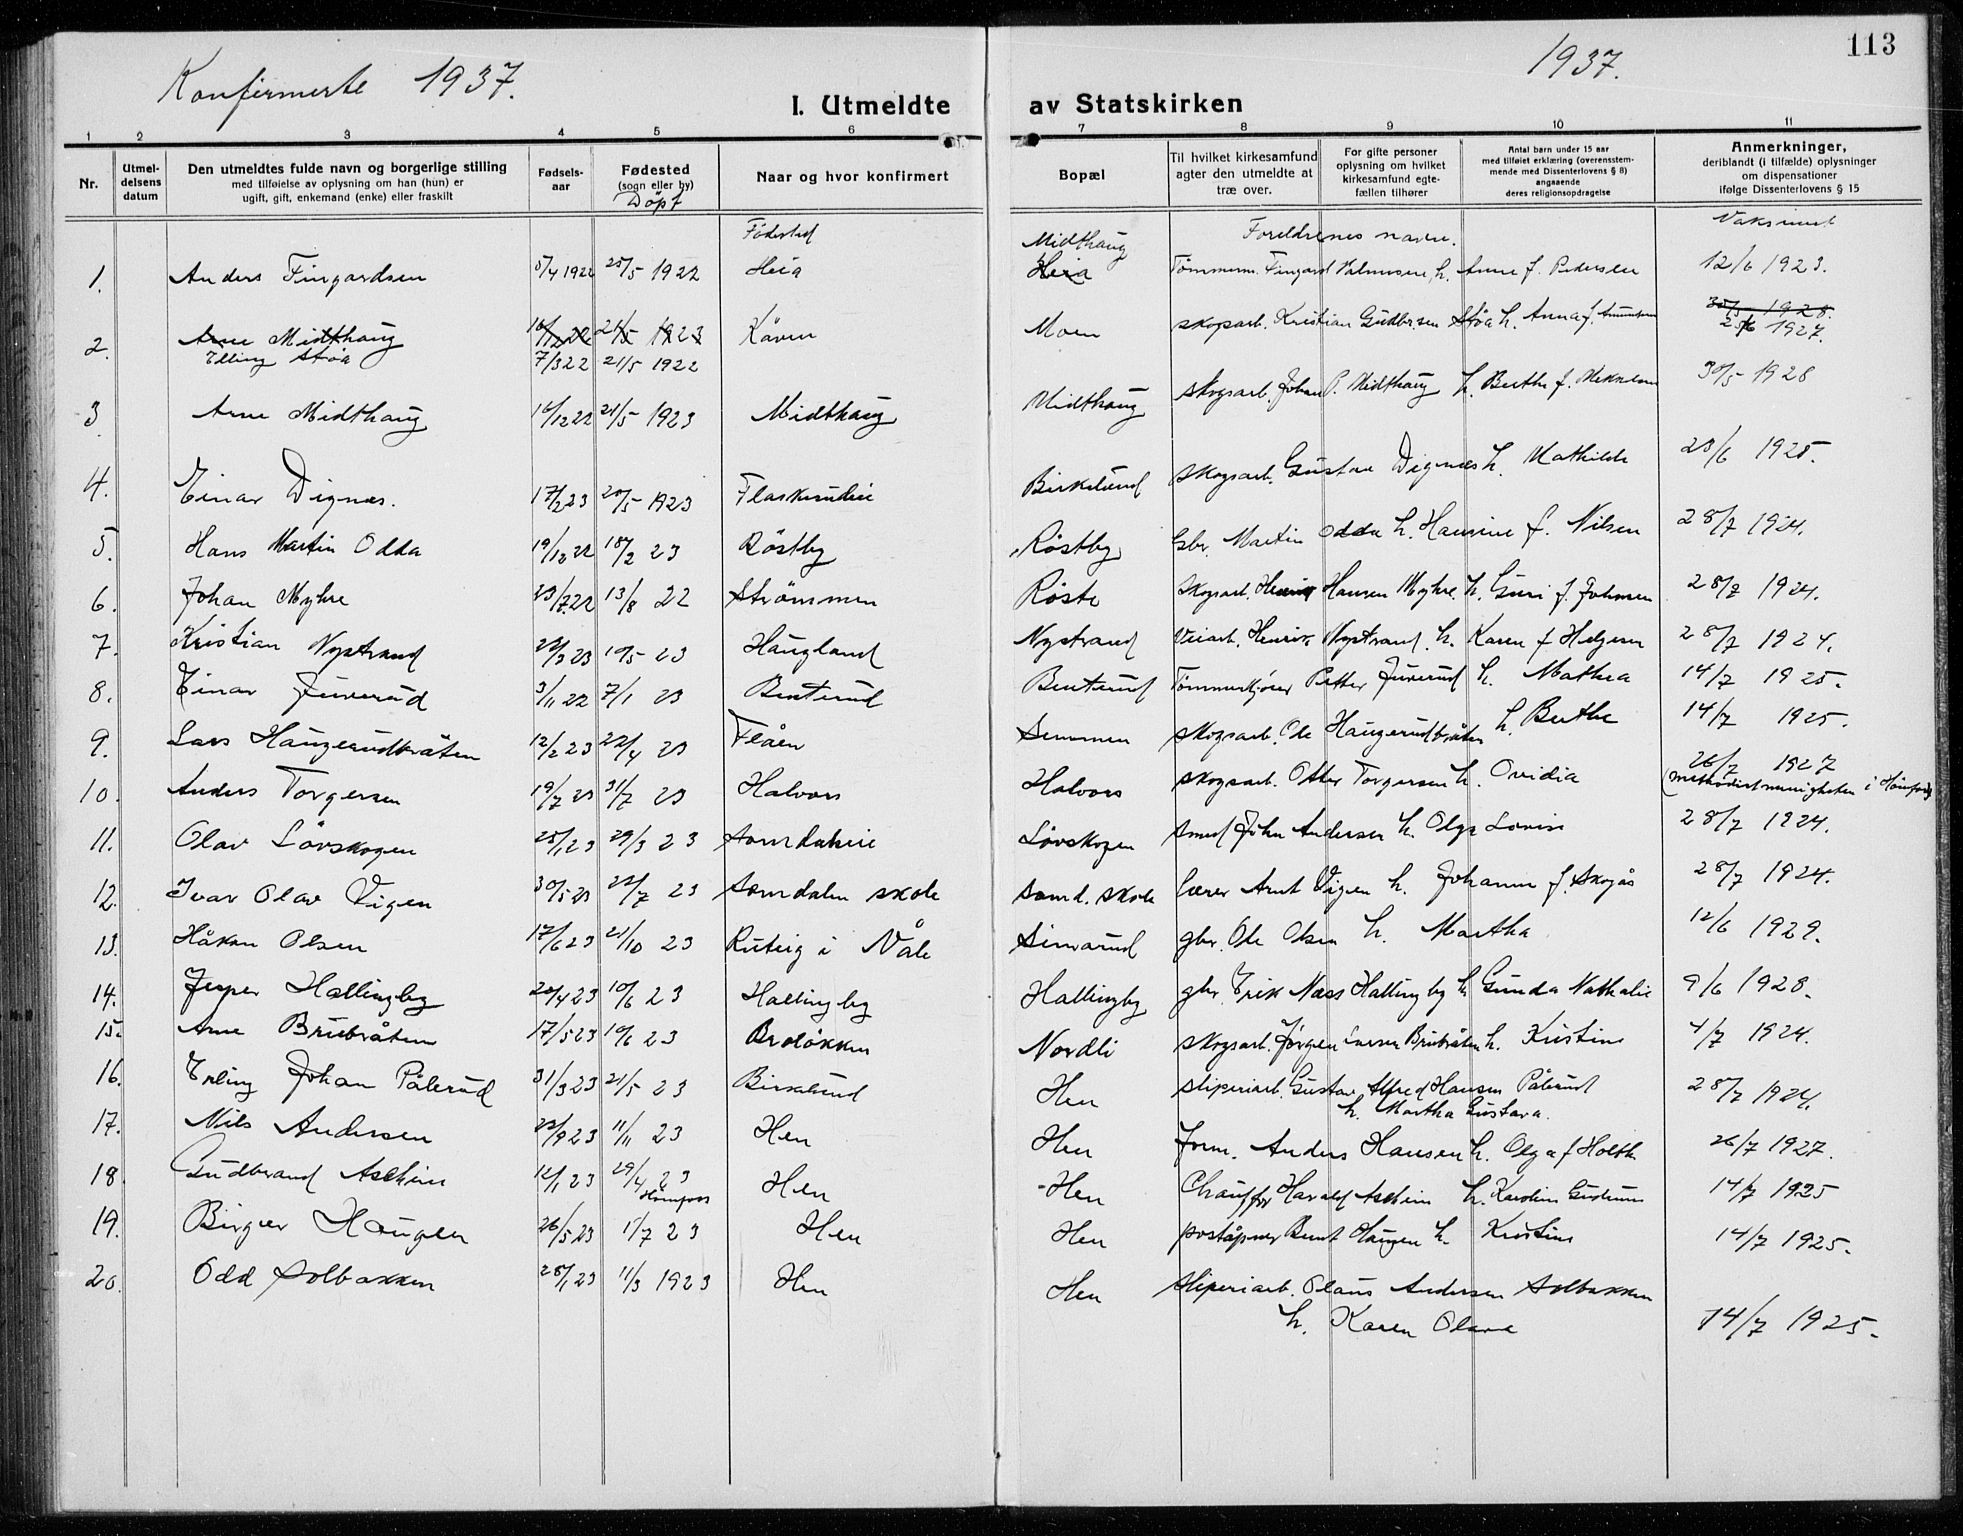 Konfirmerte 1937.
1937.
113
I. Utmeldte av Statskirken
1 2 3 4 5 6 7 8 9 10 11
Nr.
Utmel-
delsens
datum
Den utmeldtes fulde navn og borgerlige stilling
med tilføielse av oplysning om han (hun) er
ugift, gift, enkemand (enke) eller fraskilt
Fødsels-
aar
Fødested
(sogn eller by)
Döpt
Naar og hvor konfirmert
Bopæl
Til hvilket kirkesamfund
agter den utmeldte at
træ over.
For gifte personer
oplysning om hvilket
kirkesamfund egte-
fællen tilhører
Antal barn under 15 aar
med tilføiet erklæring (overensstem-
mende med Dissenterlovens § 8)
angaaende
deres religionsopdragelse
Anmerkninger,
deriblandt (i tilfælde) oplysninger
om dispensationer
ifølge Dissenterlovens § 15
Födested
Foreldrenes navn.
Vaksinert
Midthaug
1. Anders Fingardsen 5/4 1922 25/5 1922 Heia Heia Tömmerm. Fingard h. Anne f. Pedersen 12/6 1923.
2. Arne Midthaug 16/12 22 21/5 1923 Kåven Moen skogsarb. Kristian Gudbrandsen Stöa h. Anna f. 30/5 1928.
Elling Stöa 7/3 22 21/5 1922 25/6 1927.
3. Arne Midthaug 16/12 22 21/5 1923 Midthaug Midthaug skogsarb. Johan P. Midthaug h. Berthe f. 30/5 1928
4. Einar Dignæs. 17/2 23 20/5 1923 Birkelund skogsarb. Gustav Dignæs h. Mathilde 23/6 1925.
5. Hans Martin Odda 19/12 22 18/2 23 Röstby Röstby Gbr. Martin Odda h. Hansine f. Nilsen 28/7 1924.
6. Johan Myhre 23/7 22 13/8 22 Strömmen Röste Skogsarb. Hansen Myhre h. Guri f. Johnsen 28/7 1924.
7. Kristian Nystrand 22/3 23 10/5 23 Haugland Nystrand Veiarb. Henrik Nystrand h. Karen f. Helgesen 28/7 1924.
8. Einar Juverud 3/11 22 7/1 23 Benterud Benterud Tömmerkjörer Petter Juverud h. Mathea 14/7 1925.
9. Lars Haugerudbråten 12/2 23 22/4 23 Flåen Semmen skogsarb. Ole Haugerudbråten h. Berthe 14/7 1925.
10. Anders Torgersen 19/7 23 31/7 23 Halvors Halvors skogsarb. Otter Torgersen h. Ovidia 26/7 1927
(methodistmenigheten i Hönefoss)
11. Olav Lövskogen 25/1 23 29/3 23 Lövskogen smed John Andersen h. Olga Lovise 28/7 1924.
12. Ivar Olav Vigen 30/5 23 22/7 23 Somdalen skole Somd. skole lærer Arnt Vigen h. Johanne f. Skogås 28/7 1924.
13. Håkon Olsen 17/6 23 21/10 23 i Våle gbr. Ole Olsen h. Martha 12/6 1929.
14. Jesper Hallingby 20/4 23 10/6 23 Hallingby Hallingby gbr. Erik Næss Hallingby h. Gunda Nathalie 9/6 1928.
15. Arne Brubråten 17/5 23 10/6 23 Brolökken Nordli skogsarb. Jörgen Iversen Brubråten h. Kristine 4/7 1924.
16. Erling Johan Pålerud 31/3 23 21/5 23 Birkelund Hen sliperiarb. Gustav Alfred Hansen Pålerud 28/7 1924.
h. Martha Gustava.
17. Nils Andersen 22/9 23 11/11 23 Hen Hen form. Anders Hansen h. Olga f. Holth 26/7 1927.
18. Gudbrand Aschim 12/1 23 29/4 23 Hen Hen Chauffør Harald Aschim h. Karoline 14/7 1925
Hönefoss
19. Birger Haugen 26/5 23 1/7 23 Hen Hen poståpner Bernt Haugen h. Kristine 14/7 1925.
20. Odd Solbakken 28/1 23 11/3 1923 Hen Hen sliperiarb. Olaus Andersen Solbakken
h. Karen Olava 14/7 1925.